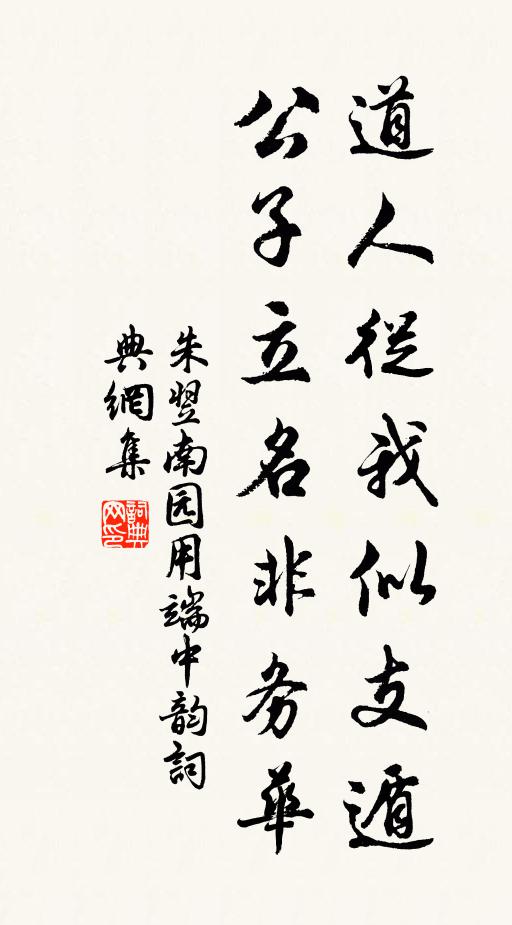 道人從我似支遁
公子立名非务華
朱翌南园用端中韵詞
典網集
詞典
网印